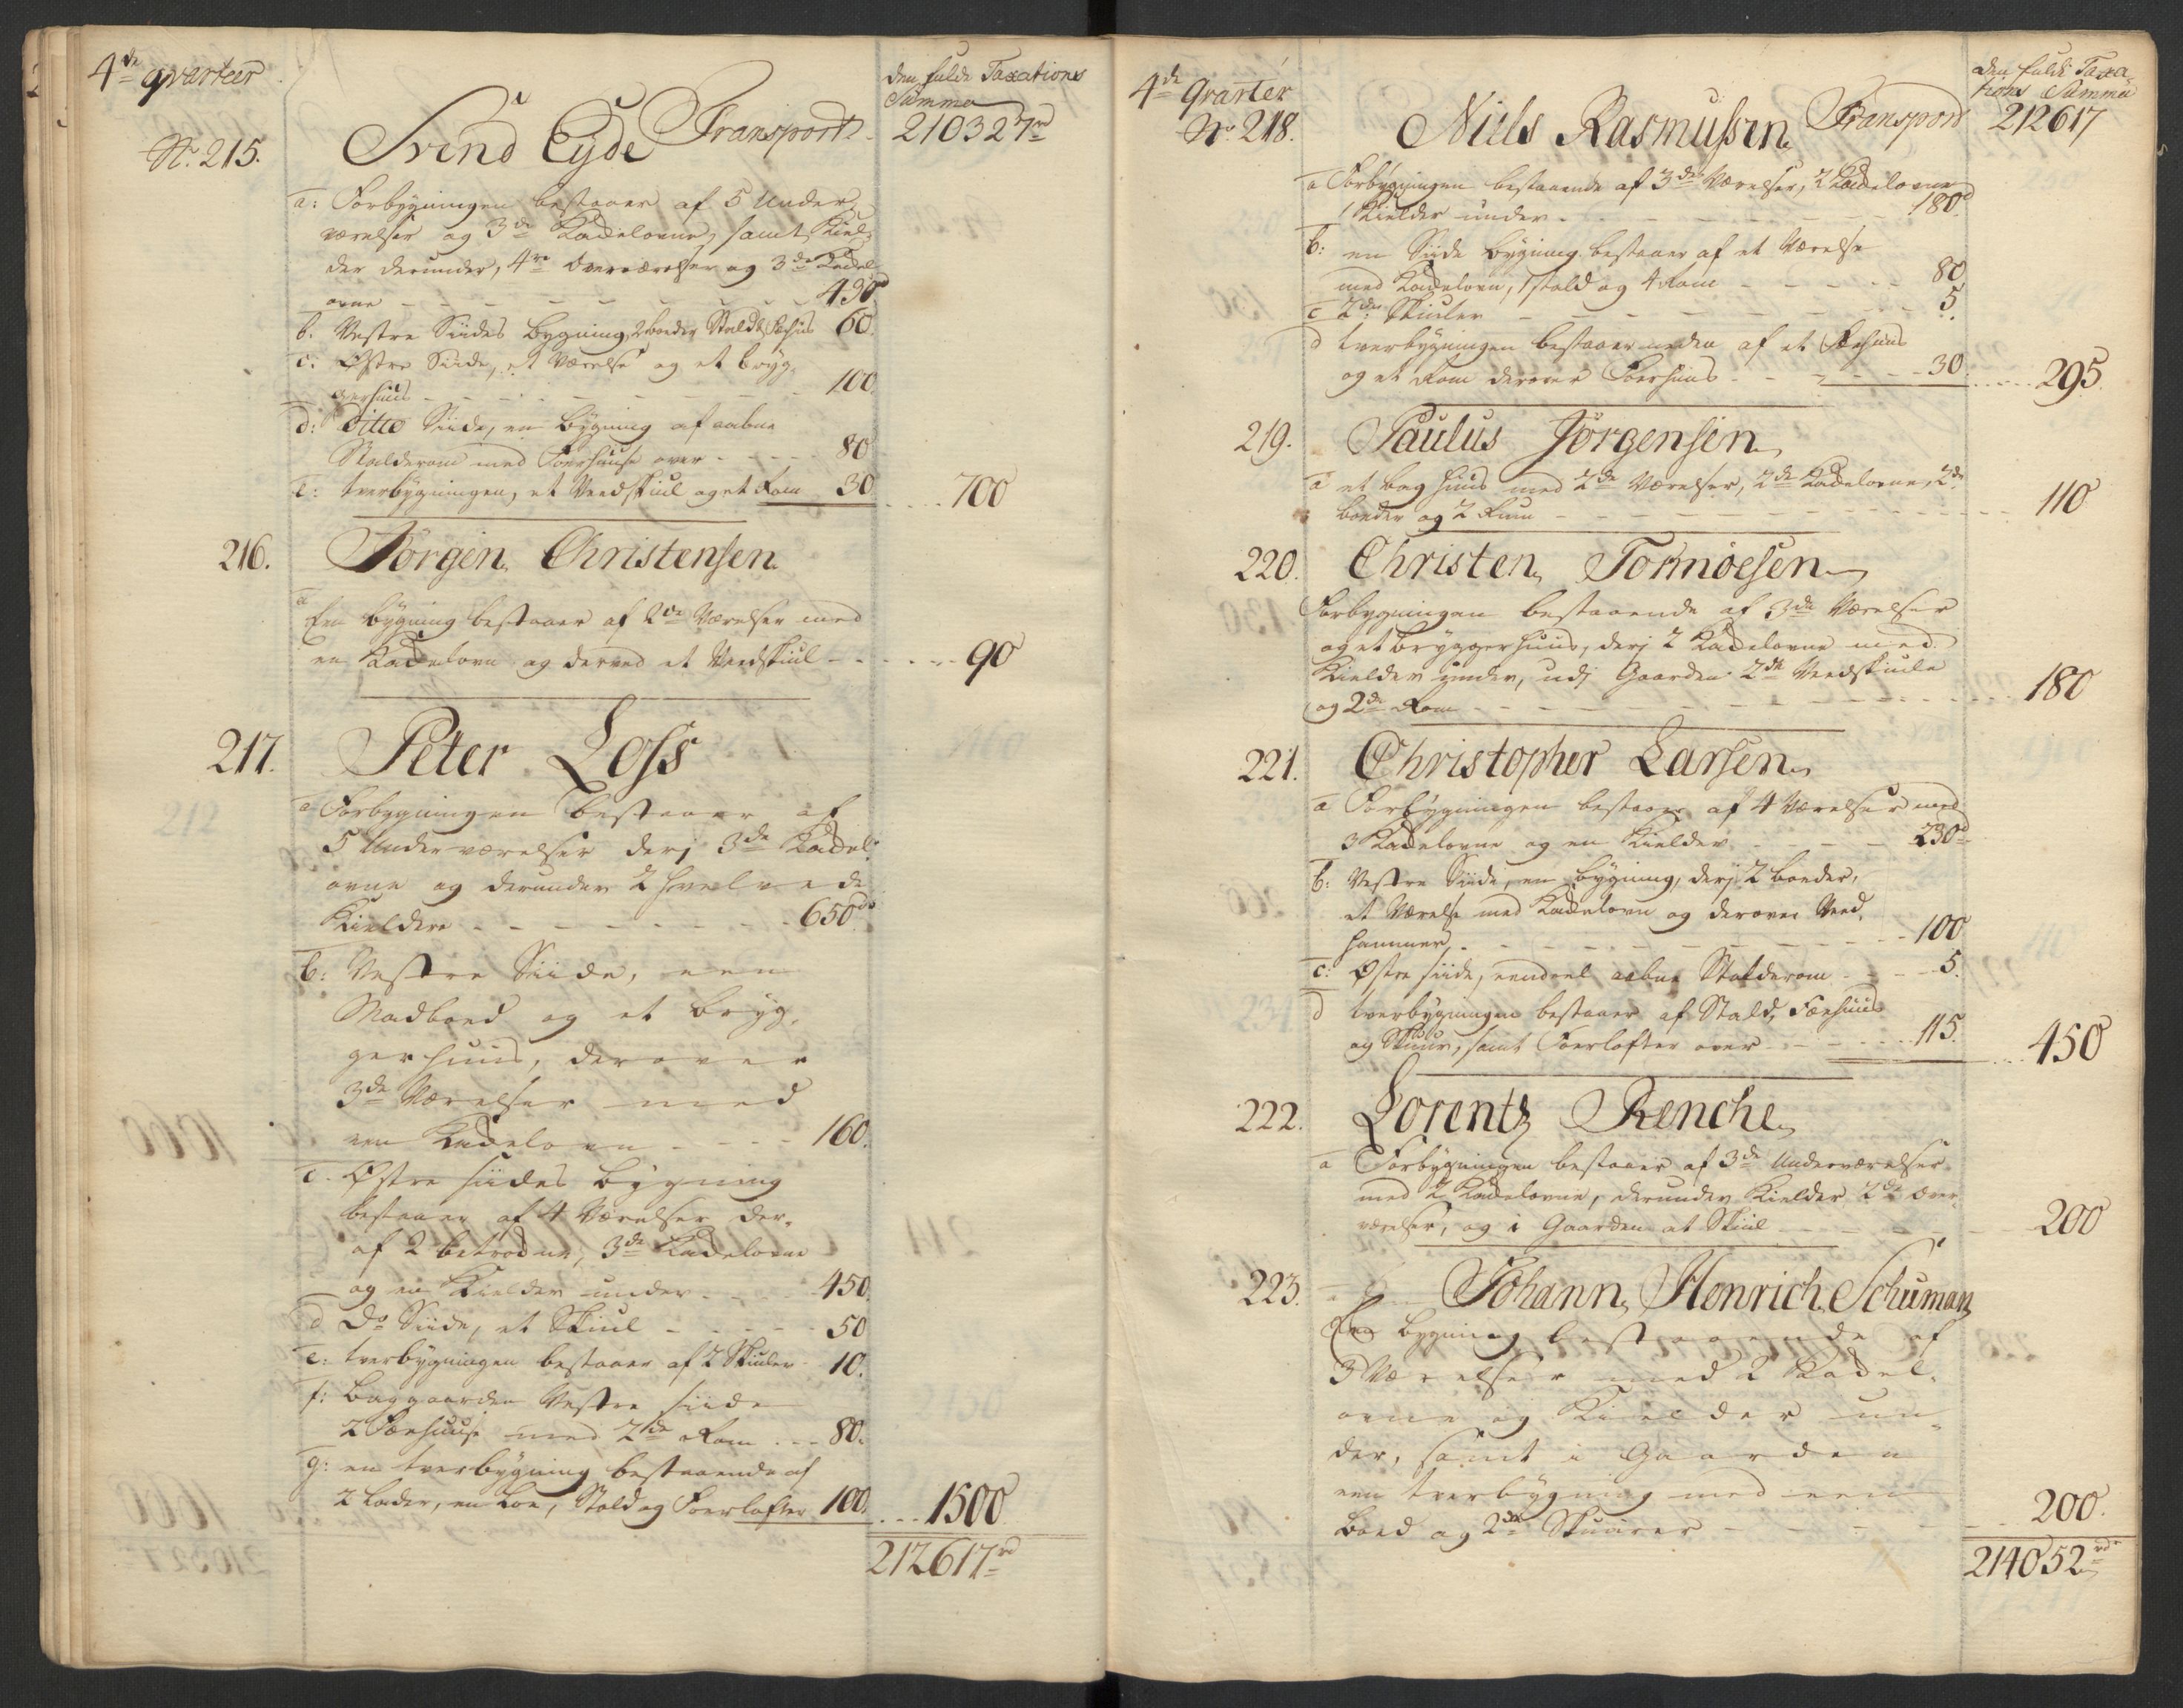 4de qvarteer
den fulde Taxations
Summa
No 215. Svend Eyde Transport 210327rd
a: Forbygningen bestaaer af 5 Under
værelser og 3de Kackelovne, samt Kiel-
der derunder, 4re Overværelser og 3de Kackel
ovne - - - 430
b. Vestre Siides Bygning, 2 boeder Stald Fæhuus 60.
c. Østre Siide, et Værelse og et bryg-
gerhuus - - - 100.
d: ditto Siide, en bygning af aabne
Stalderom med Foerhuuse over - - - 80
e: tverbygningen, et Veedskiul og et Rom 30 .... 700
216. Jörgen Christensen
a
En bygning bestaaer af 2de Værelser med
en Kackelovn og derved et Veedskiul - - - 90
217. Peter Loss
a Forbygningen bestaaer af
5 Underværelser derj 3de Kackel-
ovne og derunder 2 hvelvede
Kieldere - - - 650rd
b: Vestre Siide, een
Madboed og et bryg-
gerhuus, derover
3de Værelser med
een Kackelovn - - - 160.
c. Østre siides bygning
bestaaer af 4 Værelser der-
af 2 betrodne, 3de Kackelovne
og en Kielder under - - - 450.
d Do Siide, et Skiul - - - 50
e: tverbygningen bestaaer af 2 Skiuler 10.
f: baggaarden Vestre siide
2 Fæehuuse med 2de Rom - - - 80.
g: en tverbygning bestaaende af
2 Lader, en Loe, Stald og Foerlofter 100. .... 1500
212617rd
4de qvarter
den fulde Taxa-
tions Summa
No 218. Niels Rasmussen Transport 212617
a Forbygningen bestaaende af 3de Værelser, 2 Kackelovne
1 Kielder under - - - 180
b: en Siide bygning bestaaer af et Værelse
med Kackelovn, 1 stald og 4 Rom - - - 80
c 2de Skiuler - - - 5.
d tverbygningen bestaaer neden af et Fæehuus
og et Rom derover Foerhuus - - - 30 .... 295.
219. Paulus Jörgensen
a et bag huus med 2de Værelser, 2de Kackelovne, 2de
boeder og 2 Rum - - - 110
220. Christen Tormöesen
Forbygningen bestaaende af 3de Værelser
og et bryggerhuus, derj 2 Kackelovne med
Kielder under, udj Gaarden 2de Veedskiule
og 2de Rom - - - 180
221. Christopher Larsen
a Forbygningen bestaaer af 4 Værelser med
3 Kackelovne og en Kielder - - - 230
b: Vestre Siide, en bygning, derj 2 boeder,
et Værelse med Kackelovn og derover Veed-
hammer, - - - 100
c: Østre siide, eendeel aabne Stalderom - - - 5.
d tverbygningen bestaaer af Stald, Fæehuus
og Skuur, samt Foerlofter over - - - 115. .... 450
222. Lorentz Renche
a Forbygningen bestaaer af 3de Underværelser
med 2 Kackelovne, derunder Kielder 2de Over-
værelser, og i Gaarden et Skiul - - - 200
223. Johann Henrich Schuman
Een bygning bestaaende af
3 Værelser med 2 Kackel-
ovne og Kielder un-
der, samt i Gaarden
een tverbygning med een
boed og 2de Skuurer - - - 200.
214052rd